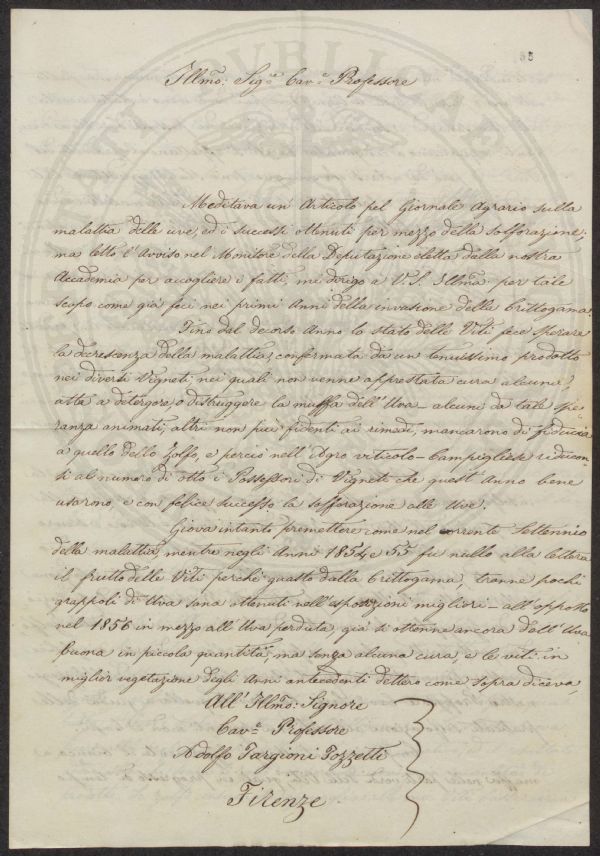 55
Illmo: Sigr Cavr Professore
Meditava un' Articolo pel Giornale Agrario sulla
malattia delle uve, ed i successi ottenuti per mezzo della solforazione;
ma letto l'Avviso nel Monitore della Deputazione eletta dalla nostra
Accademia per accogliere i fatti, mi dirigo a V. S. Illma per tale
scopo come già feci nei primi Anni della invasione della Crittogama.
Fino dal decorso Anno lo stato delle Viti fece sperare
la decrescenza della malattia, confermata da un tenuissimo prodotto
nei diversi Vigneti nei quali non venne apprestata cura alcuna,
atta a detergere, o distruggere la muffa dell'Uva – alcuni da tale spe-
ranza animati, altri non più fidenti ai rimedi, mancarono di fiducia
a quello dello Zolfo, e perciò nell'Agro viticolo – Campigliese riducon-
si al numero di otto i Possessori di Vigneti che quest'Anno bene
usarono, e con felice successo la solforazione alle Uve.
Giova intanto premettere come nel corrente Settennio
della malattia, mentre negli Anni 1854, e 55 fu nullo alla lettera
il frutto delle Viti perchè guasto dalla Crittogama, tranne pochi
grappoli di Uva sana ottenuti nell'esposizioni migliori – all'opposto
nel 1856 in mezzo all'Uva perduta, già si ottenne ancora dell'Uva
buona in piccola quantità, ma senza alcuna cura, e le viti in
miglior vegetazione degli Anni antecedenti dettero come sopra diceva,
All' Illmo: Signore
Cavr Professore
Adolfo Targioni Tozzetti
Firenze